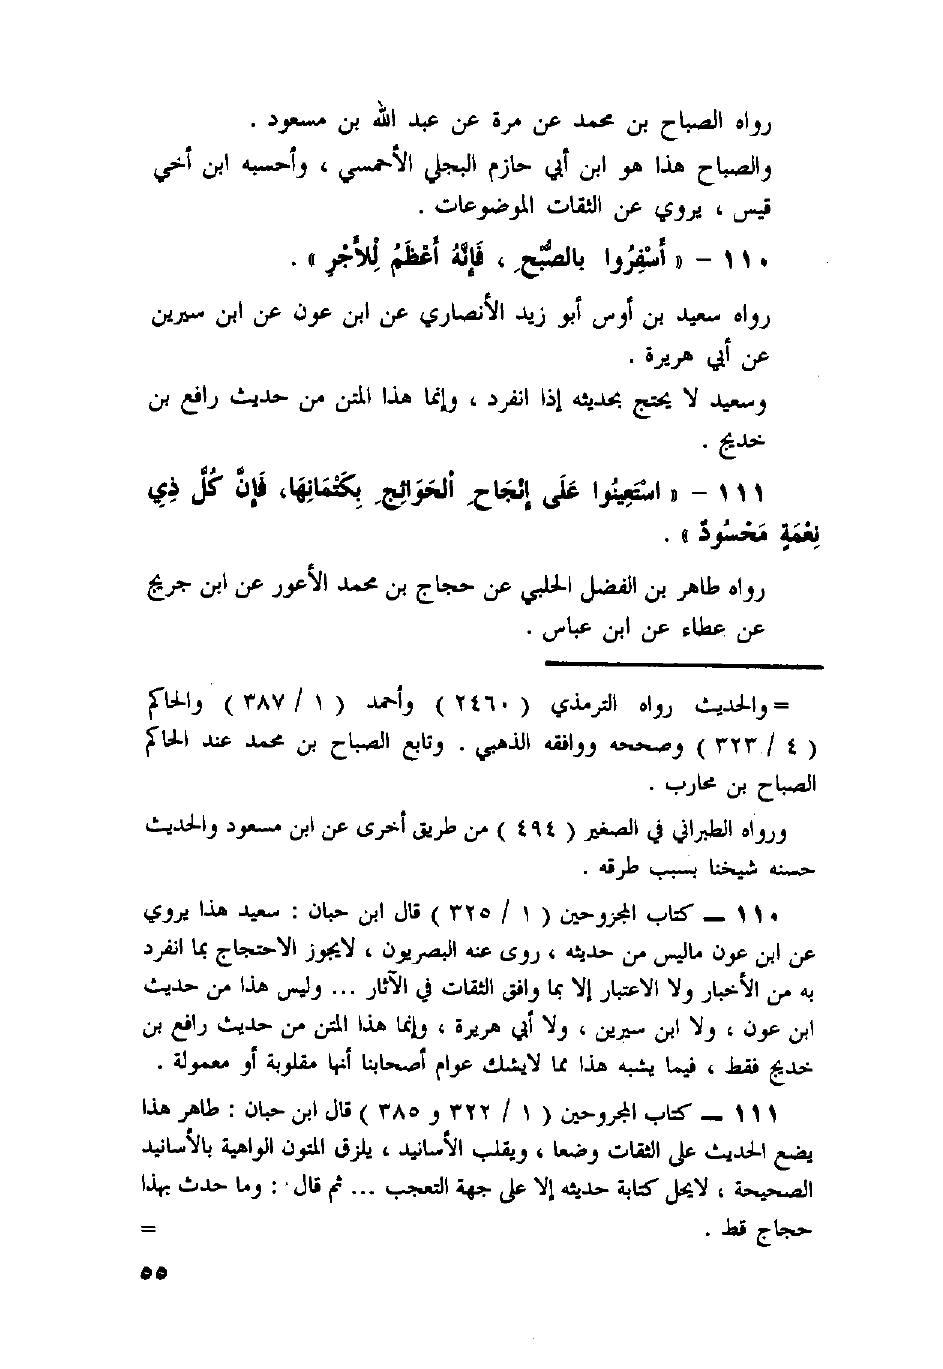 رواه الصباح بن محمد عن مرة عن عبد الله بن مسعود .
والصباح هذا هو ابن أبي حازم البجلي الأحمسي ، وأحسبه ابن أخي
قيس ، يروي عن الثقات الموضوعات .
١١٠ – « أَسْفِرُوا بالصُّبْحِ ، فَإِنَّهُ أَعْظَمُ لِلْأَجْرِ » .
رواه سعيد بن أوس أبو زيد الأنصاري عن ابن عون عن ابن سيرين
عن أبي هريرة .
وسعيد لا يحتج بحديثه إذا انفرد ، وإنما هذا المتن من حديث رافع بن
خديج .
١١١ – « اسْتَعِينُوا عَلَى إِنْجَاحِ الحَوَائِجِ بِكَتْمَانِهَا، فَإِنَّ كُلَّ ذِي
نِعْمَةٍ مَحْسُودٌ » .
رواه طاهر بن الفضل الحلبي عن حجاج بن محمد الأعور عن ابن جريج
عن عطاء عن ابن عباس .
= والحديث رواه الترمذي ( ٢٤٦٠ ) وأحمد ( ١ / ٣٨٧ ) والحاكم
( ٤ / ٣٢٣ ) وصححه ووافقه الذهبي . وتابع الصباح بن محمد عند الحاكم
الصباح بن محارب .
ورواه الطبراني في الصغير ( ٤٩٤ ) من طريق أخرى عن ابن مسعود والحديث
حسنه شيخنا بسبب طرقه .
١١٠ — كتاب المجروحين ( ١ / ٣٢٥ ) قال ابن حبان : سعيد هذا يروي
عن ابن عون ماليس من حديثه ، روى عنه البصريون ، لايجوز الاحتجاج بما انفرد
به من الأخبار ولا الاعتبار إلا بما وافق الثقات في الآثار ... وليس هذا من حديث
ابن عون ، ولا ابن سيرين ، ولا أبي هريرة ، وإنما هذا المتن من حديث رافع بن
خديج فقط ، فيما يشبه هذا مما لايشك عوام أصحابنا أنها مقلوبة أو معمولة .
١١١ — كتاب المجروحين ( ١ / ٣٢٢ و ٣٨٥ ) قال ابن حبان : طاهر هذا
يضع الحديث على الثقات وضعا ، ويقلب الأسانيد ، يلزق المتون الواهية بالأسانيد
الصحيحة ، لايحل كتابة حديثه إلا على جهة التعجب ... ثم قال : وما حدث بهذا
حجاج قط . =
٥٥